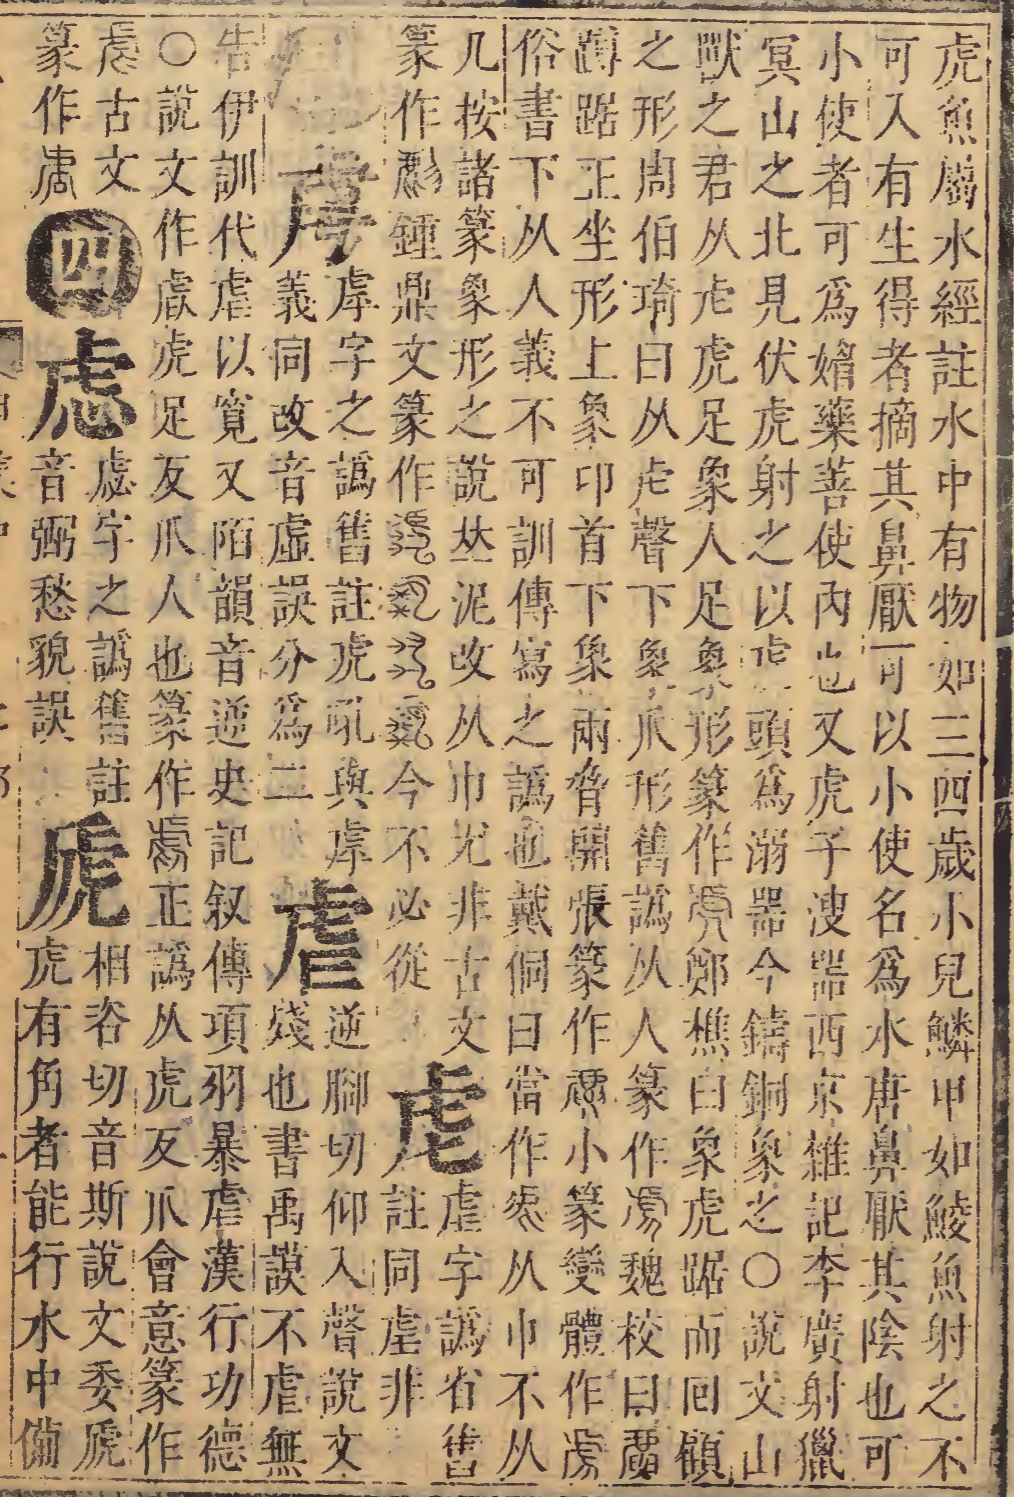 虎魚屬水經註水中有物如三四歲小兒鱗甲如鯪魚射之不
可入有生得者摘其鼻厭可以小使名爲水唐鼻厭其陰也可
小使者可爲媚藥善使內也又虎子溲器西京雜記李廣射獵
冥山之北見伏虎射之以虎頭爲溺器今鑄銅象之〇說文山
獸之君从虍虎足象人足象形篆作鄭樵曰象虎踞而回顧
之形周伯琦曰从虍聲下象爪形舊譌从人篆作魏校曰
蹲踞正坐形上象卬首下象兩脅開張篆作小篆變體作
俗書下从人義不可訓傳寫之譌也戴侗曰當作从巾不从
几按諸篆象形之說𠀤泥改从巾尤非古文
篆作鍾鼎文篆作今不必從
虐字譌省舊
註同虐非
虖字之譌舊註虎吼與虖
義同改音虛誤分爲二
虐
逆腳切仰入聲說文
殘也書禹謨不虐無
告伊訓代虐以寬又陌韻音逆史記叙傳項羽暴虐漢行功德
〇說文作虐虎足反爪人也篆作正譌从虎反爪會意篆作
古文
篆作
四
虙字之譌舊註
音弼愁貌誤
虒
相咨切音斯說文委虒
虎有角者能行水中備